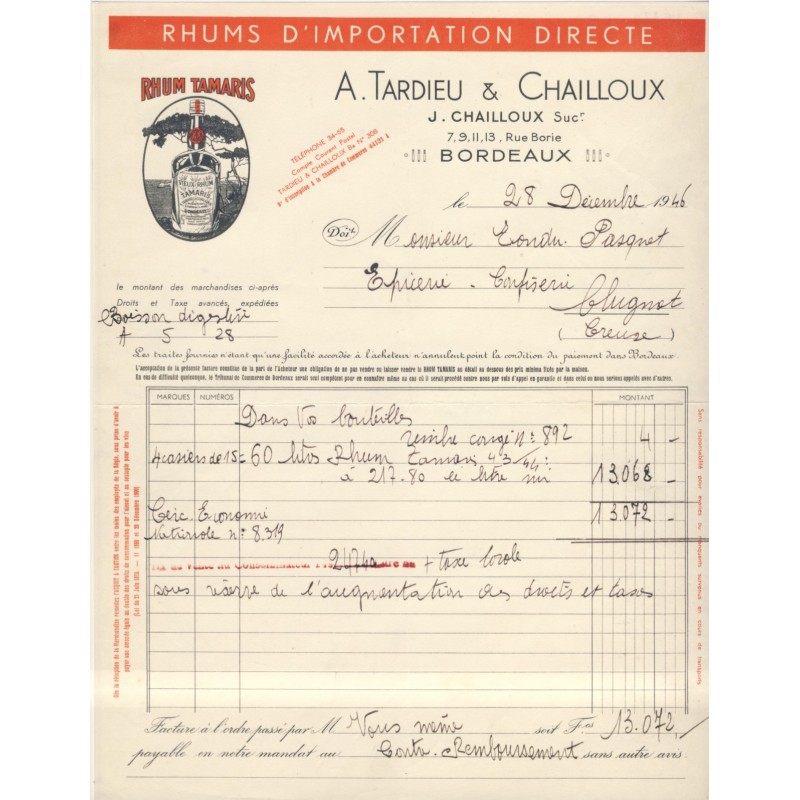 RHUMS D'IMPORTATION DIRECTE
RHUM TAMARIS
VIEUX-RHUM
TAMARIS
BORDEAUX
A. TARDIEU & CHAILLOUX
J. CHAILLOUX Sucr
7, 9, 11, 13, Rue Borie
BORDEAUX
TÉLÉPHONE 34-65
Compte Courant Postal
TARDIEU & CHAILLOUX Bx N° 308
N° d'inscription à la Chambre de Commerce 44131 A
le 28 Décembre 1946
Doit Monsieur Tondu-Pasquet
Epicerie - Confiserie
Clugnat
(Creuse)
le montant des marchandises ci-après
Droits et Taxe avancés, expédiées
Boisson digestive
A 5 28
Les traites fournies n'étant qu'une facilité accordée à l'acheteur n'annulent point la condition du paiement dans Bordeaux.
L'acceptation de la présente facture constitue de la part de l'acheteur une obligation de ne pas vendre ou laisser vendre le RHUM TAMARIS au détail au dessous des prix minima fixés par la maison.
En cas de difficulté quelconque, le Tribunal de Commerce de Bordeaux serait seul compétent pour en connaître même au cas où il serait procédé contre nous par voie d'appel en garantie et dans celui où nous serions appelés avec d'autres.
MARQUES NUMÉROS MONTANT
Dans Vos bouteilles
timbre congé N°: 892 4 -
4 casiers de 15 = 60 litres Rhum Tamaris 43/44°
à 217.80 le litre nu 13.068 -
Circ. Economie 13.072 -
Nationale n°: 8.319
Prix de Vente au Consommateur 247,40 + taxe locale
sous réserve de l'augmentation des droits et taxes
Facture à l'ordre passé par M Vous même soit Frs 13.072,/
payable en notre mandat au Contre-Remboursement sans autre avis.